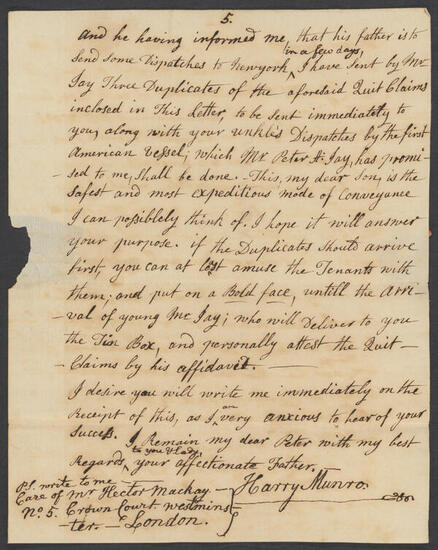 5.
and he having informed me, that his father is to
send some Dispatches to Newyork in a few days, I have sent by Mr
Jay Three Duplicates of the aforesaid Quit Claims
inclosed in This Letter, to be sent immediately to
you, along with your unkles Dispatches by the first
American vessel; which Mr. Peter A: Jay, has promi-
sed to me, shall be done. This, my dear Son, is the
safest and most expeditious mode of Conveyance
I can possiblely think of. I hope it will answer
your purpose. if the Duplicates should arrive
first, you can at lest amuse the Tenants with
them; and put on a Bold face, untill the Arri-
val of young Mr Jay; who will Deliver to you
the Tin Box, and personally attest the Quit
Claims by his affidavit.
I desire you will write me immediately on the
Receipt of this, as I am very anxious to hear of your
Success. I Remain my dear Peter with my best
Regards to you & Lady, your affectionate Father.
Harry Munro.
P.S. write to me
Care of Mr Hector Mackay
No. 5. Crown Court Westmins-
ter - London.